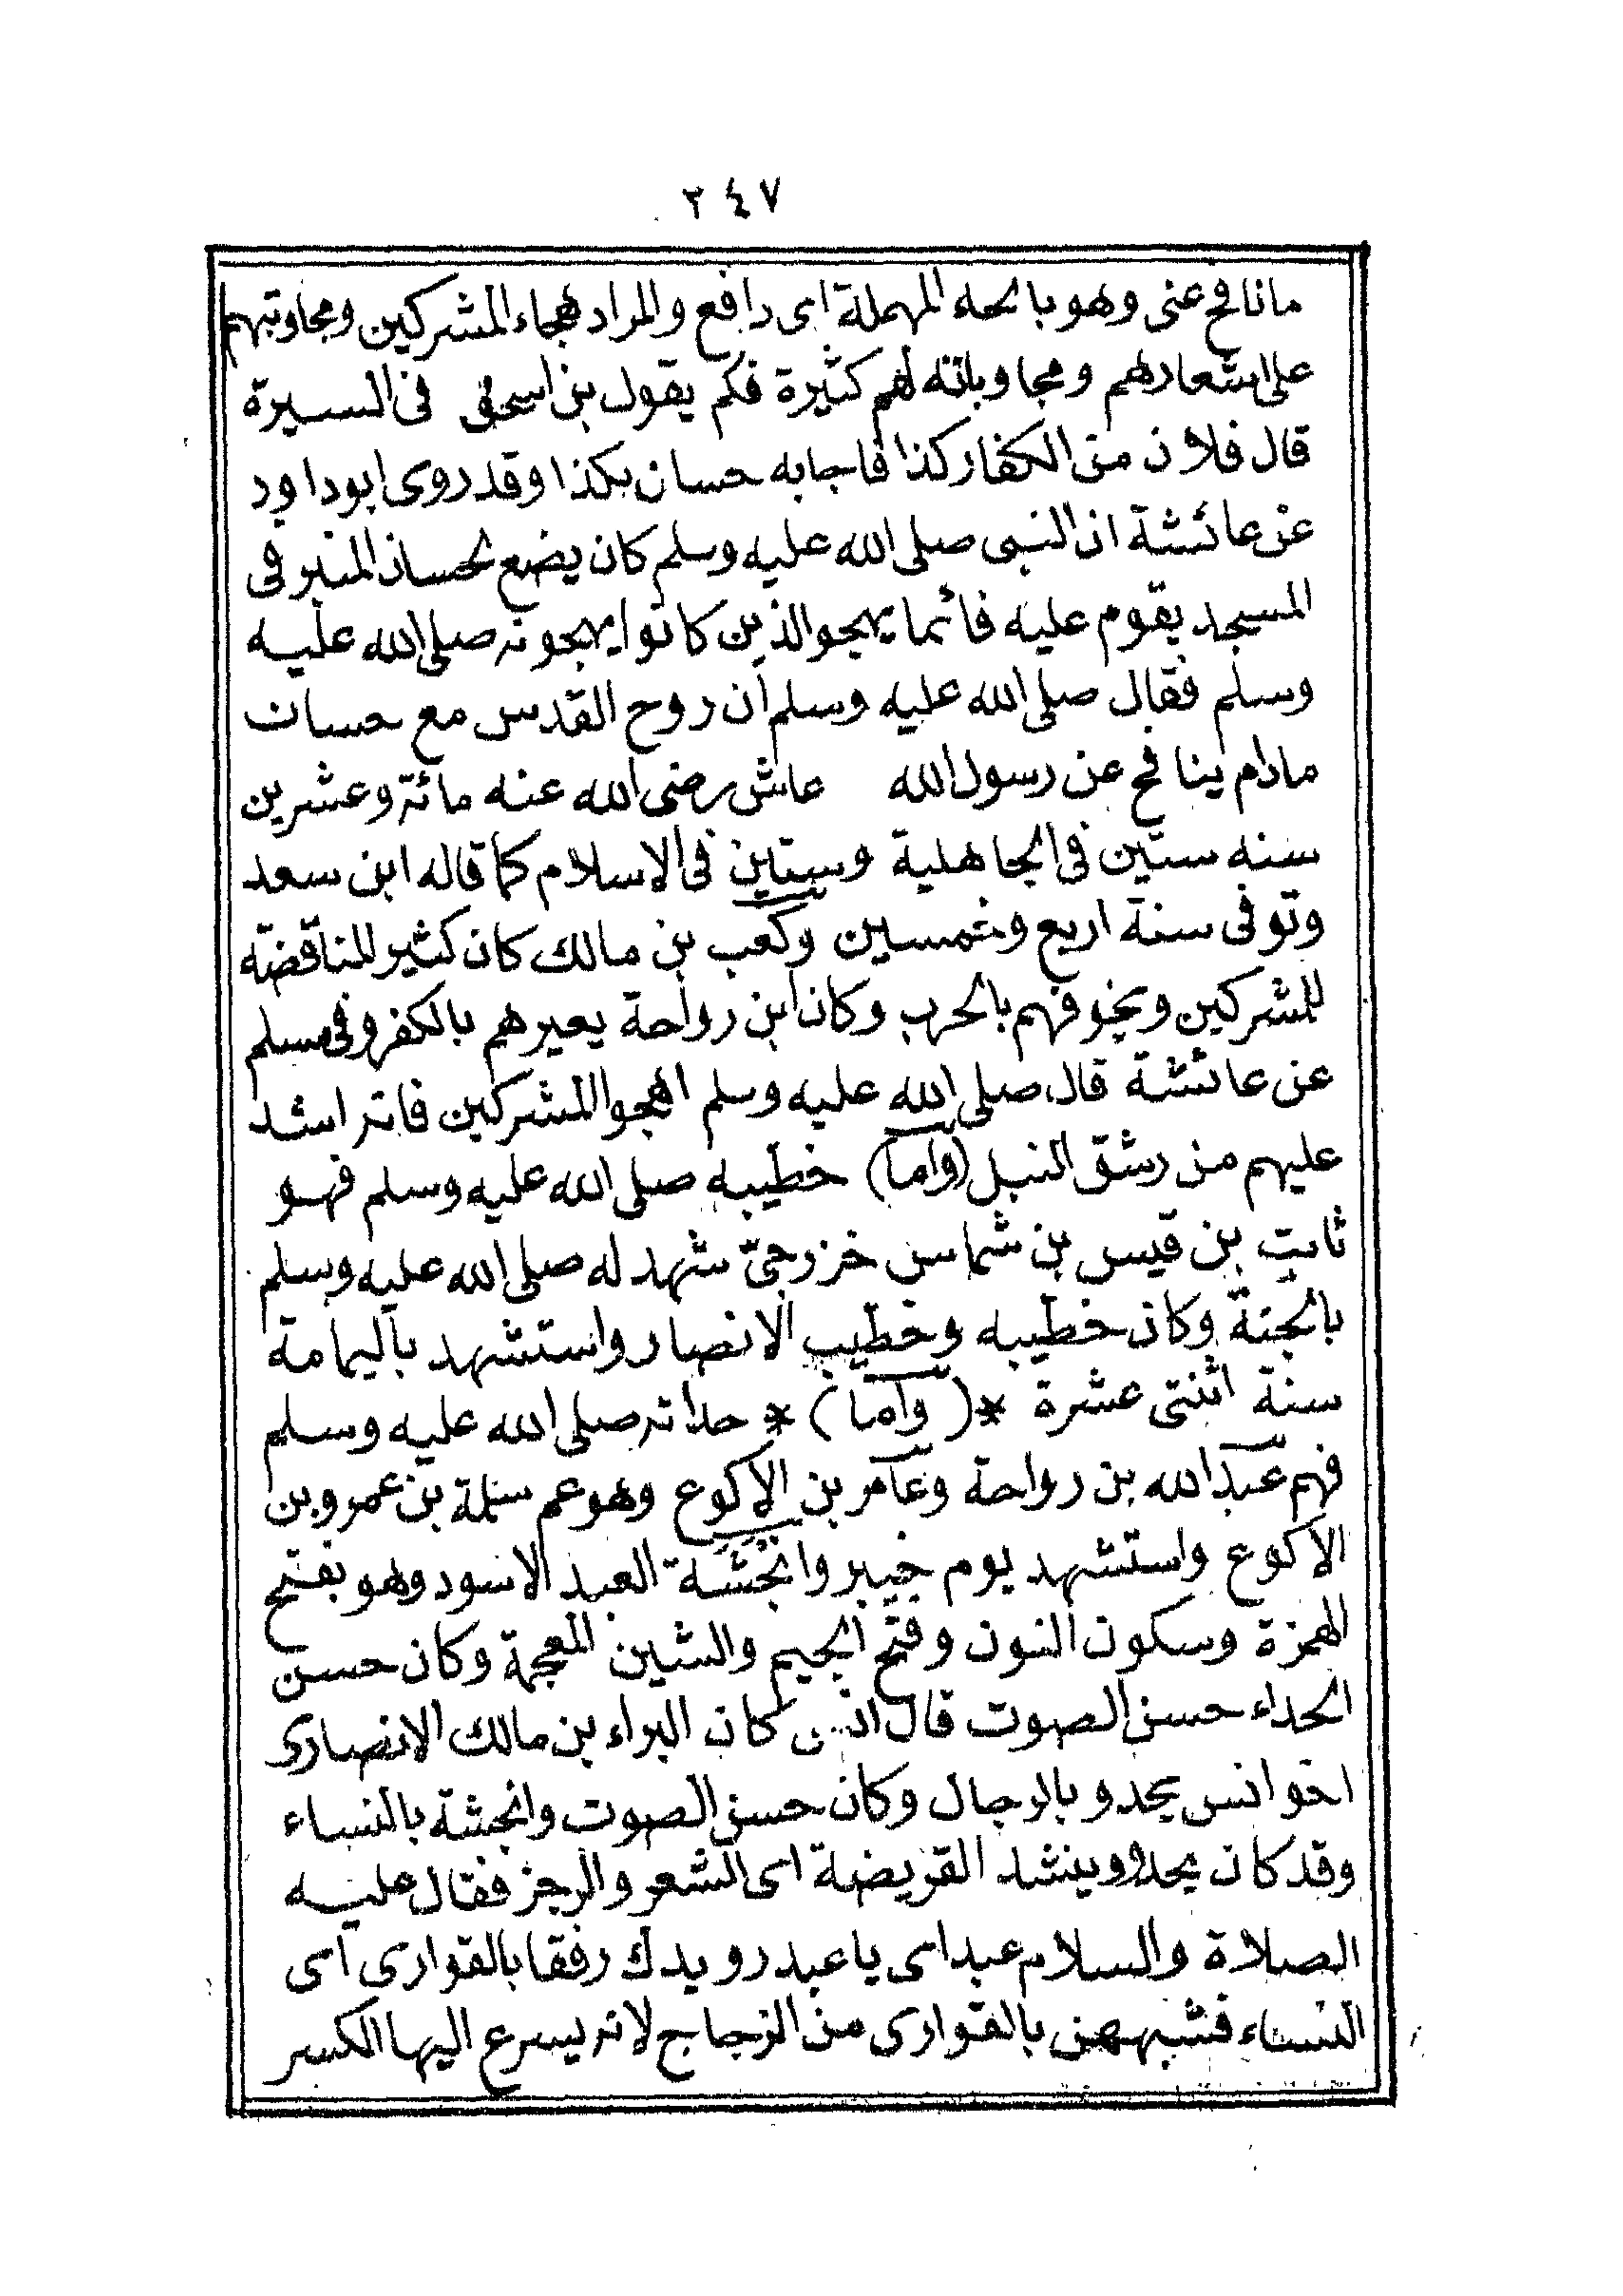 ٢٤٧
مانافح عنى وهو بالحاء المهملة اى دافع والمراد هجاء المشركين ومجاوبتهم
على اشعارهم ومجاوباته لهم كثيرة فكم يقول بن اسحق فى السيرة
قال فلان من الكفار كذا فاجابه حسان بكذا وقد روى ابوداود
عن عائشة ان النبى صلى الله عليه وسلم كان يضع لحسان المنبر فى
المسجد يقوم عليه قائما يهجو الذين كانوا يهجونه صلى الله عليه
وسلم فقال صلى الله عليه وسلم ان روح القدس مع حسان
مادام ينافح عن رسول الله عاش رضى الله عنه مائة وعشرين
سنه ستين فى الجاهلية وستين فى الاسلام كما قاله ابن سعد
وتوفى سنة اربع وخمسين وكعب بن مالك كان كثير المناقضة
للمشركين ويخوفهم بالحرب وكان ابن رواحة يعيرهم بالكفر وفى مسلم
عن عائشة قال صلى الله عليه وسلم اهجوا المشركين فانه اشد
عليهم من رشق النبل (واما) خطيبه صلى الله عليه وسلم فهو
ثابت بن قيس بن شماس خزرجىّ شهد له صلى الله عليه وسلم
بالجنة وكان خطيبه وخطيب الانصار واستشهد باليمامة
سنة اثنتى عشرة *(واما)* حداته صلى الله عليه وسلم
فهم عبد الله بن رواحة وعامر بن الاكوع وهو عم سلمة بن عمرو بن
الاكوع واستشهد يوم خيبر وانجشة العبد الاسود وهو بفتح
الهمزة وسكون النون وفتح الجيم والشين المعجمة وكان حسن
الحداء حسن الصوت قال انس كان البراء بن مالك الانصارى
اخو انس يحدو بالرجال وكان حسن الصوت وانجشة بالنساء
وقد كان يحدو وينشد القريضة اى الشعر والرجز فقال عليه
الصلاة والسلام عبد اى يا عبد رويدك رفقا بالقوارى اى
النساء فشبههن بالقوارى من الزجاج لانه يسرع اليها الكسر